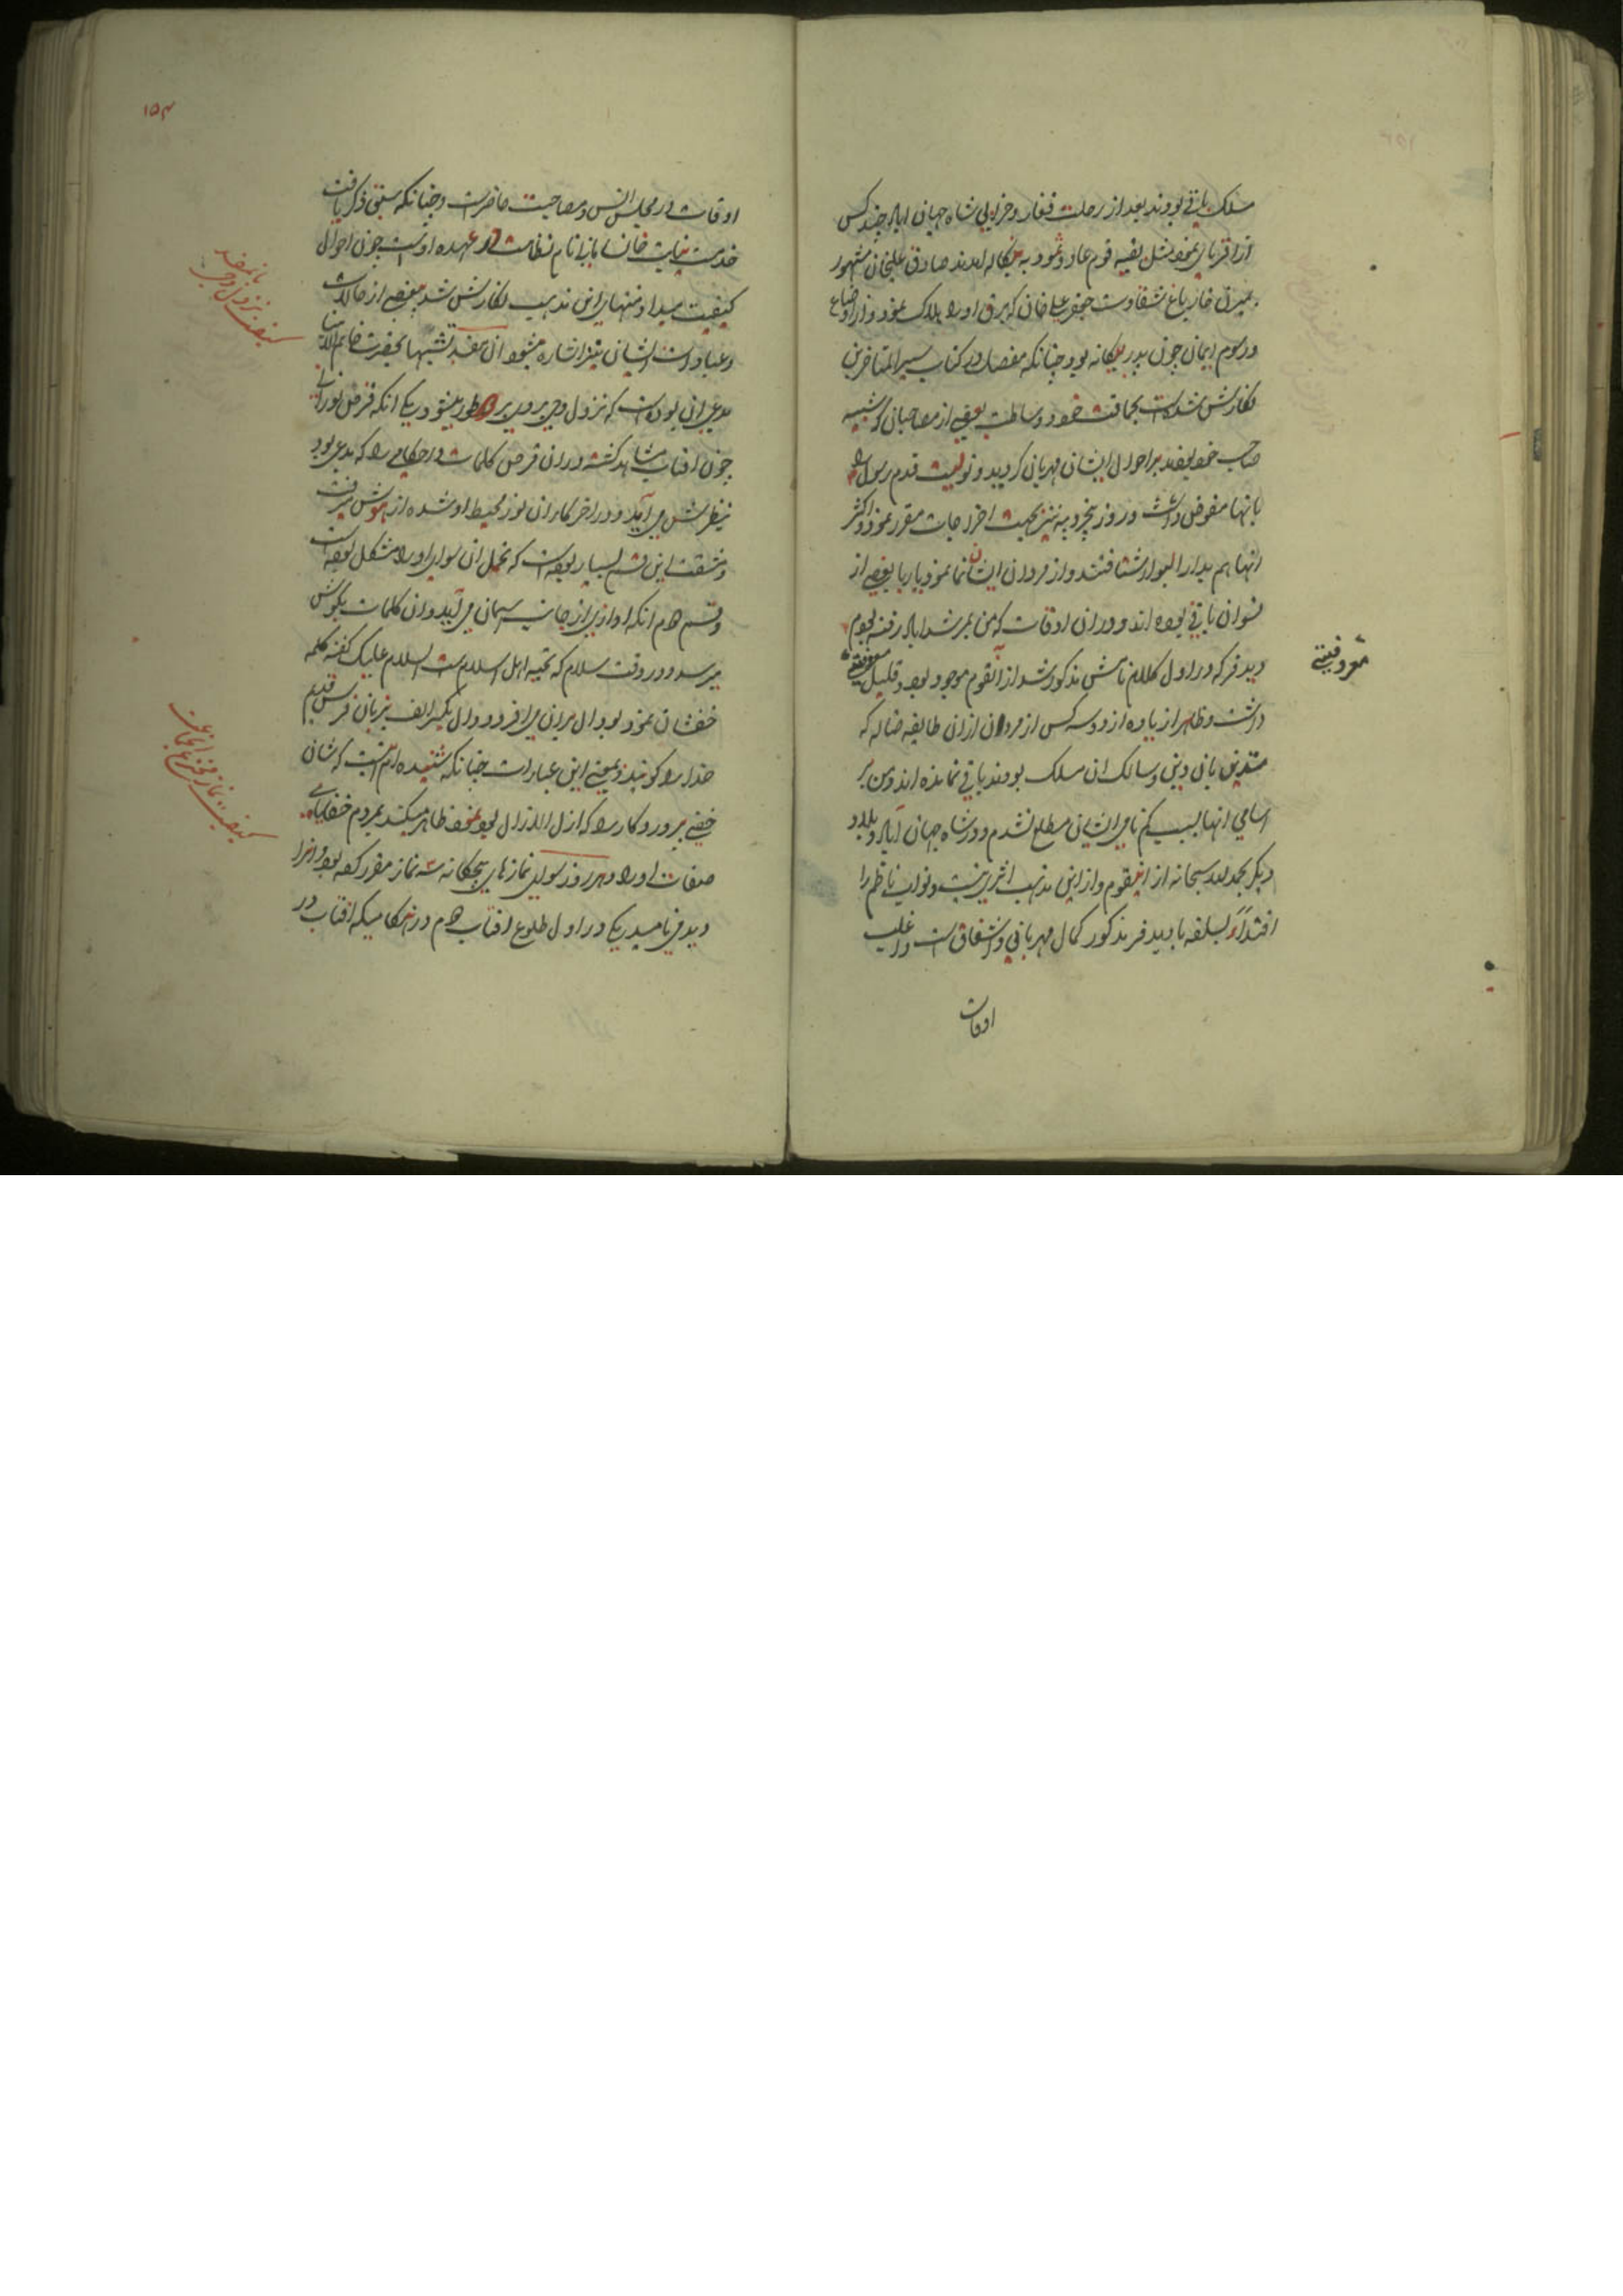 مسلک باقی بودند بعد از رحلت فغار و خرابی شاه جهان اباد چند کس
از اقربای نمود مثل بقیه قوم عاد و ثمود به بنگاله امدند صادق علیخان مشهور
بمیرن خار باغ شقاوت جعفر علی خان که برق او را هلاک نمود و از اوضاع
و رسوم ایمان چون پدر بیگانه بود چنانکه مفصل در کتاب سیر المتاخرین
نگارش شده است بحماقت خود و وساطت بعضی از مصاحبان که شبیه
صاحب خود بودند بر احوال ایشان مهربان گردید و تولیت قدم رسول را
بانها مفوض داشت و روز پنجروپیه نیز بجهت اخراجات مقرر نمود و اکثر
انها هم بدار البوار شتافتند و از مردان ایشان نماند مگر یا بعضی از
نسوان باقی بوده اند و در ان اوقات که من بمرشد اباد رفته بودم
دید فر که در اول کلام نامش مذکور شد از انقوم موجود بود و قلیل معرفتی
داشت و ظاهرا زیاده از دو سه کس از مردان از ان طایفه ضاله که
متدین بان دین و سالک ان مسلک بودند باقی نمانده اند و من بر
اسامی انها بسبب گم نامی ایشان مطلع نشدم و در شاه جهان اباد و بلاد
دیگر بحمد الله سبحانه از اینقوم و از این مذهب اثری نیست و نواب ناظم را
اقتداً بسلفه با دید فر مذکور کمال مهربانی و اشفاق است و اغلب
اوقات
معرفتی
۱۵۴
اوقات در مجلس انس و مصاحبت حاضر است و چنانکه سبق ذکر یافت
خدمت نیابت خانسامانی نظامت در عهده اوست چون احوال
کیفیت مبدا و منتهای این مذهب نگارش شد ببعضی از حالات
و عبادات ایشان نیز اشاره میشود ان مفسد تشبیها بحضرت خاتم الانبیا
مدعی ان بوده است که نزول وحی بر وی بر دو طور میشود یکی انکه قرص نورانی
چون افتاب مشاهد گشته در ان قرص کلمات و احکامی را که مدعی بود
بنظرش می آید و در اخر کار ان نور محیط او شده از هوش میرفت
و مشقت این قسم بسیار بوده است که تحمل ان سوای او را مشکل بوده است
و قسم دوم انکه اوازی از جانب سمان می آید و ان کلمات بگوش
میرسد و در وقت سلام که تحیه اهل اسلام است السلام علیک گفته کلمه
خفشان نمود بود ال بران می افزود و ال بکسر الف بزبان فرس قدیم
خدا را گویند و معنی این عبارت چنانکه شنیده ام اینست که شان
خفی پرورد کار را که ازل الازال بود بمن ظاهر میکند بمردم خفایای
صفات او را و هر روز سوای نمازهای پنجگانه سه نماز مقرر کرده بود و انرا
دید می نامید یکی در اول طلوع افتاب دوم در هنگامیکه افتاب در
کیفیت نزول وحی بان مفسد
کیفیت نماز مخترع انجماعت